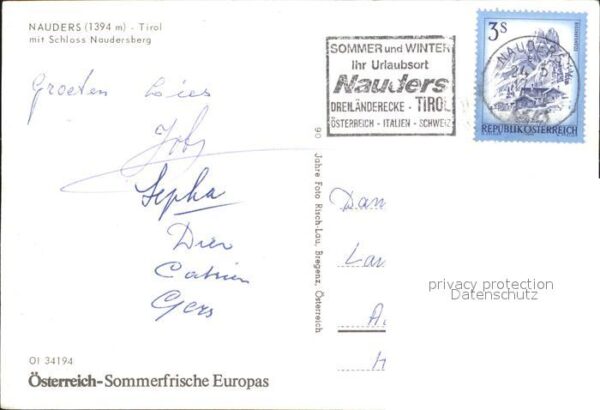 NAUDERS (1394 m) - Tirol
mit Schloss Naudersberg
Groeten Lies
Sepha
Dier
Catrien
Gers
OI 34194
Österreich-Sommerfrische Europas
90 Jahre Foto Risch-Lau, Bregenz, Österreich
SOMMER und WINTER
Ihr Urlaubsort
Nauders
DREILÄNDERECKE - TIROL
ÖSTERREICH - ITALIEN - SCHWEIZ
3S
NAUDERS
REPUBLIK ÖSTERREICH
Dam
Lan
A
H
privacy protection
Datenschutz